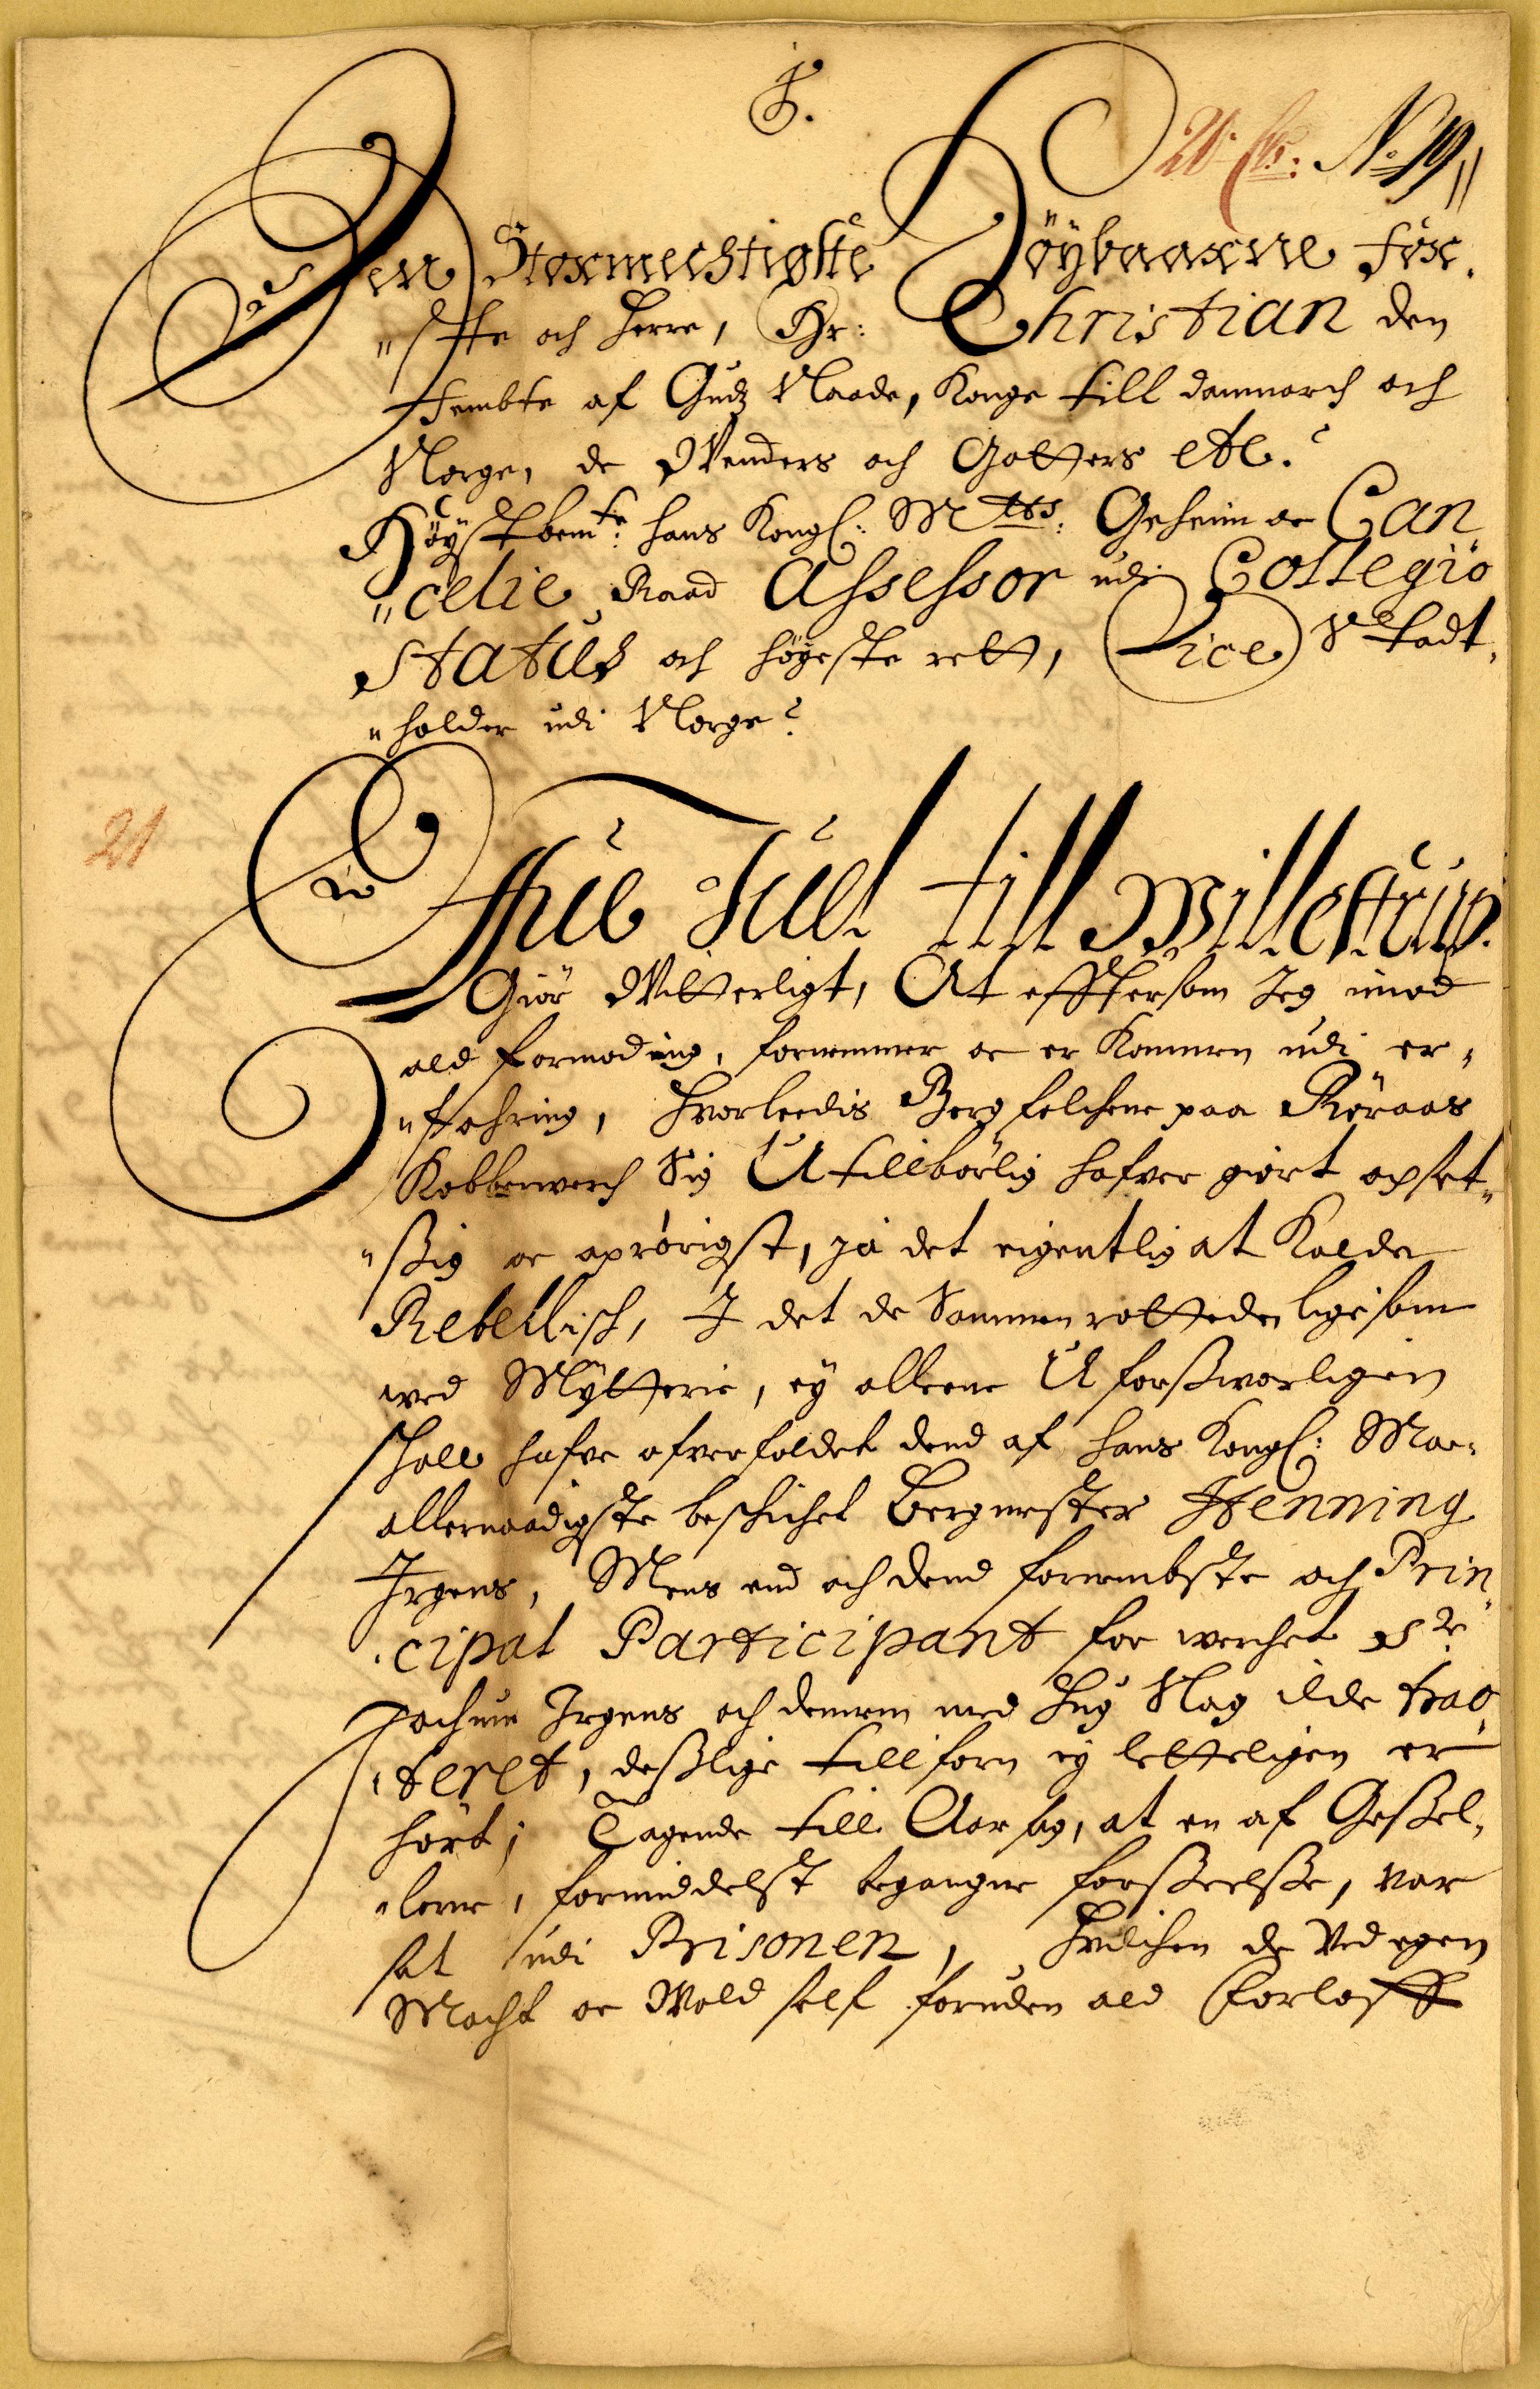 J.
No 19
Den Stormechtigste Høÿbaarne Før¸
"ste och Herre, Hr: Christian den
Fembte af Gudz Naade, Konge till danmarch och
Norge, de Wenders och Gotters etc.
Höÿstbemte: hans Kongl: Mtts: Geheim oc Can„
"celie Raad Assessor udi Collegio
Status och höÿeste rett, Vice Stadt¸
"holder udi Norge
Offue Juel till Willestrup.
Giör Witterligt, At effttersom Jeg imod
ald formoding, fornemmer oc er Kommen udi er¸
"fahring, hvorleedis Bergfolchene paa Röraas
Kobberwerch Sig Utillbörlig hafver giort opset„
"ßig oc oprörigst, ja det eigentlig at Kalde
Rebellisch, I det de Sammenrottede, ligesom
wed Mÿtterie, eÿ alleene Uforßwarligen
schall hafve ofverfaldet dend af hans Kongl: Maÿ:
allernaadigste beschichet Bergmester Henning
Irgens, Mens end och dend fornembste och Prin„
"cipal Participant for werchet Sr
Jochum Irgens och dennem med hug Slag ilde trac„
"teret, deßlige tillforn eÿ letteligen er
hört; Tagende till Aarsag, at en af Geßel„
"lerne, formiddelst begangne forßeelße, var
sat udi Prisonen, hvilchen de Ved egen
Macht oc Wold self foruden ald forloff
21